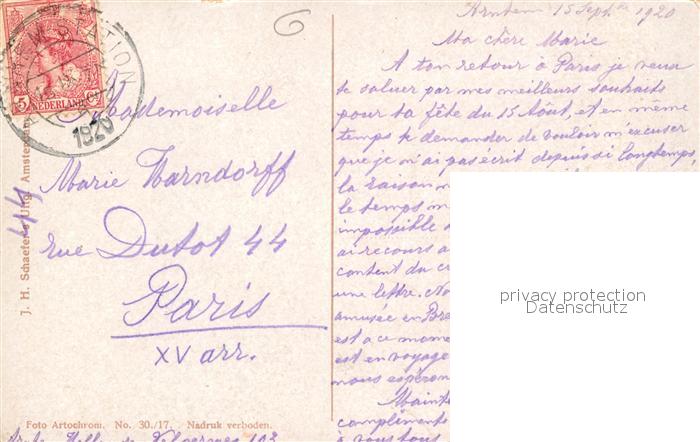 6
Arnhem 15 Septbre 1920
STATION
5 NEDERLAND Ct
1920
Mademoiselle
Marie Harndorff
rue Dutot 44
Paris
XV arr.
44
J. H. Schaefer's Uitg. Amsterdam
Foto Artochrom. No. 30./17. Nadruk verboden.
Ma chère Marie
A ton retour à Paris je veux
te saluer par mes meilleurs souhaits
pour ta fête du 15 Août, et en même
temps te demander de vouloir m'excuser
que je n'ai pas ecrit depuis si longtemps,
la raison
le temps m
impossible
ai recours a
content du c
une lettre. No
amusée en Bre
est a ce mome
est en voyage
nous espéron
Maint
compliments
à vous tous
privacy protection
Datenschutz